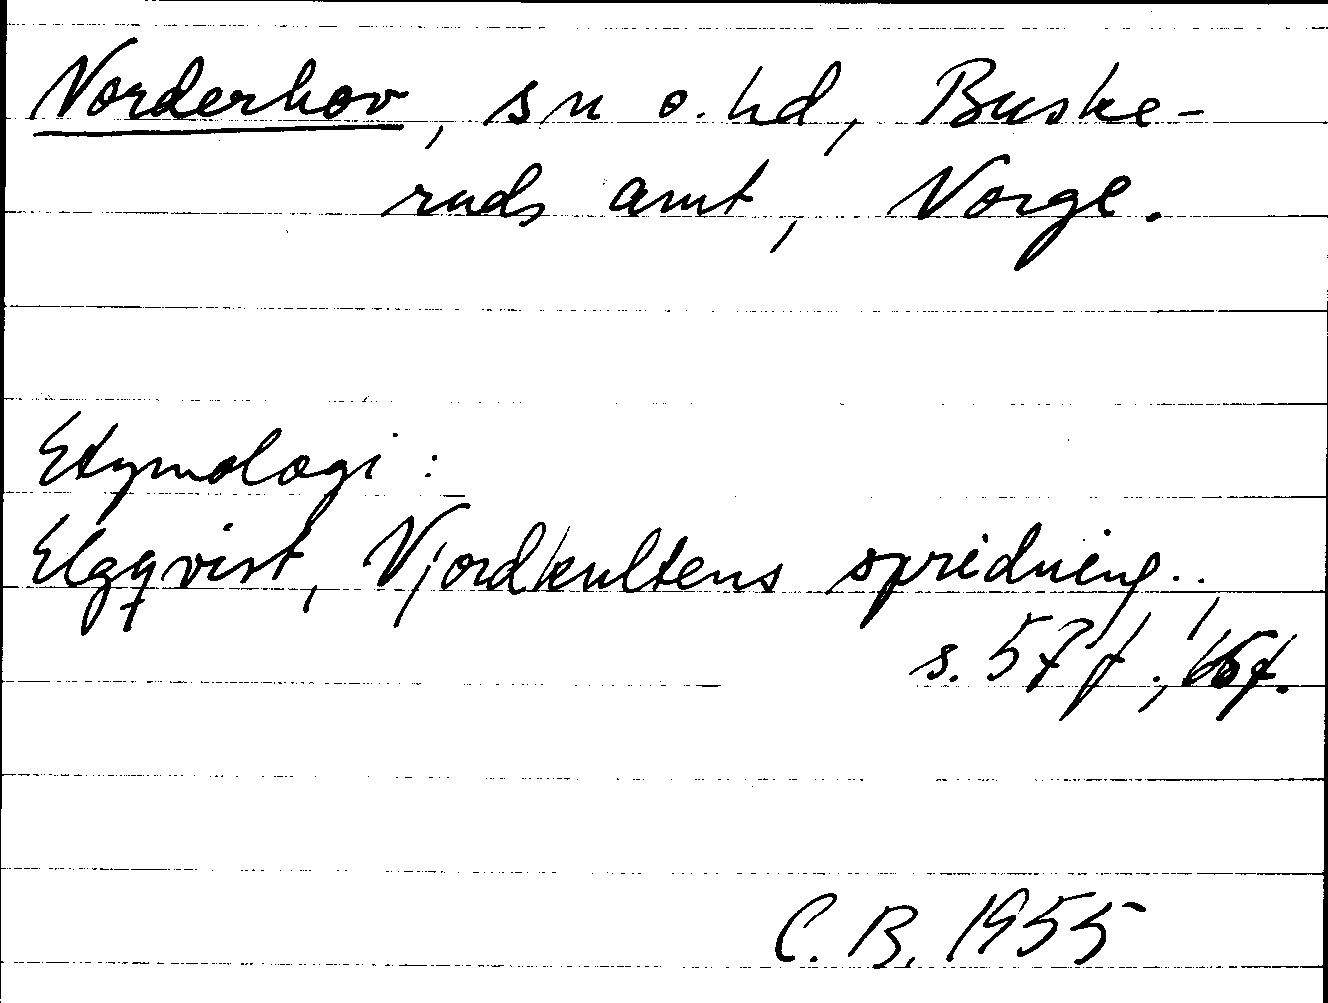 Norderhov, sn o. hd, Buske-
ruds amt, Norge.
Etymologi:
Elgqvist, Njordkultens spridning..,
s. 57 f.,
C. B. 1955